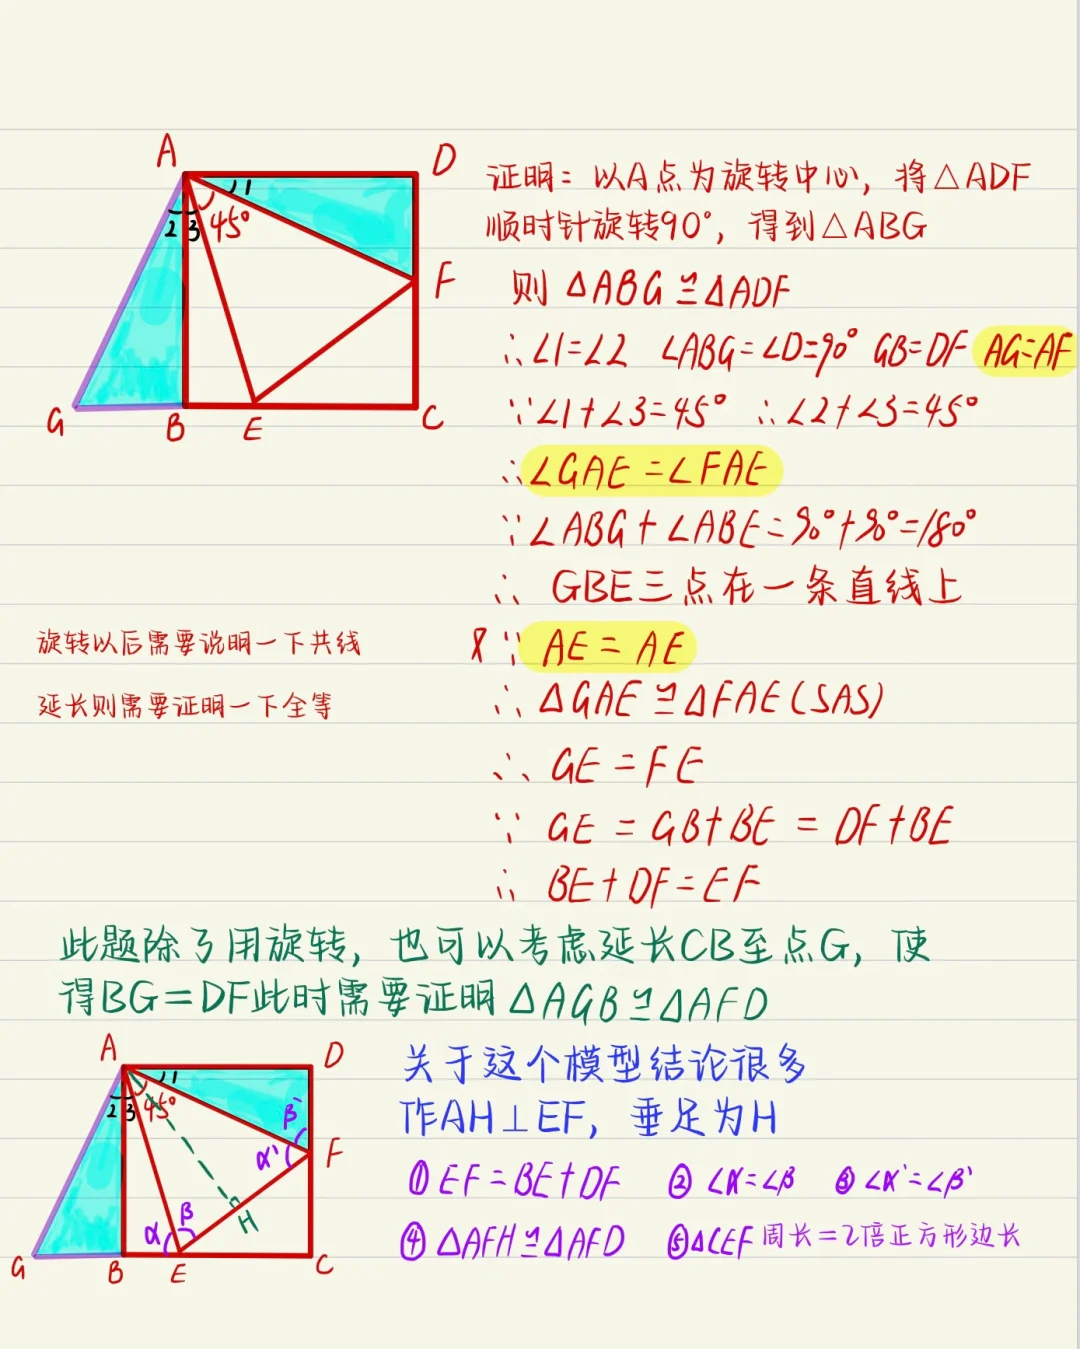 A
D
1
2
3
45°
F
G
B
E
C
证明：以A点为旋转中心，将△ADF
顺时针旋转90°，得到△ABG
则 △ABG≌△ADF
∴∠1=∠2 ∠ABG=∠D=90° GB=DF AG=AF
∵∠1+∠3=45° ∴∠2+∠3=45°
∴∠GAE=∠FAE
∵∠ABG+∠ABE=90°+90°=180°
∴ GBE三点在一条直线上
旋转以后需要说明一下共线
又∵ AE=AE
延长则需要证明一下全等
∴ △GAE≌△FAE(SAS)
∴ GE=FE
∵ GE=GB+BE=DF+BE
∴ BE+DF=EF
此题除了用旋转，也可以考虑延长CB至点G，使
得BG=DF此时需要证明△AGB≌△AFD
A
D
1
2
3
45°
β'
α'
F
H
α
β
G
B
E
C
关于这个模型结论很多
作AH⊥EF，垂足为H
① EF=BE+DF ② ∠α=∠β ③ ∠α'=∠β'
④ △AFH≌△AFD ⑤△CEF周长=2倍正方形边长